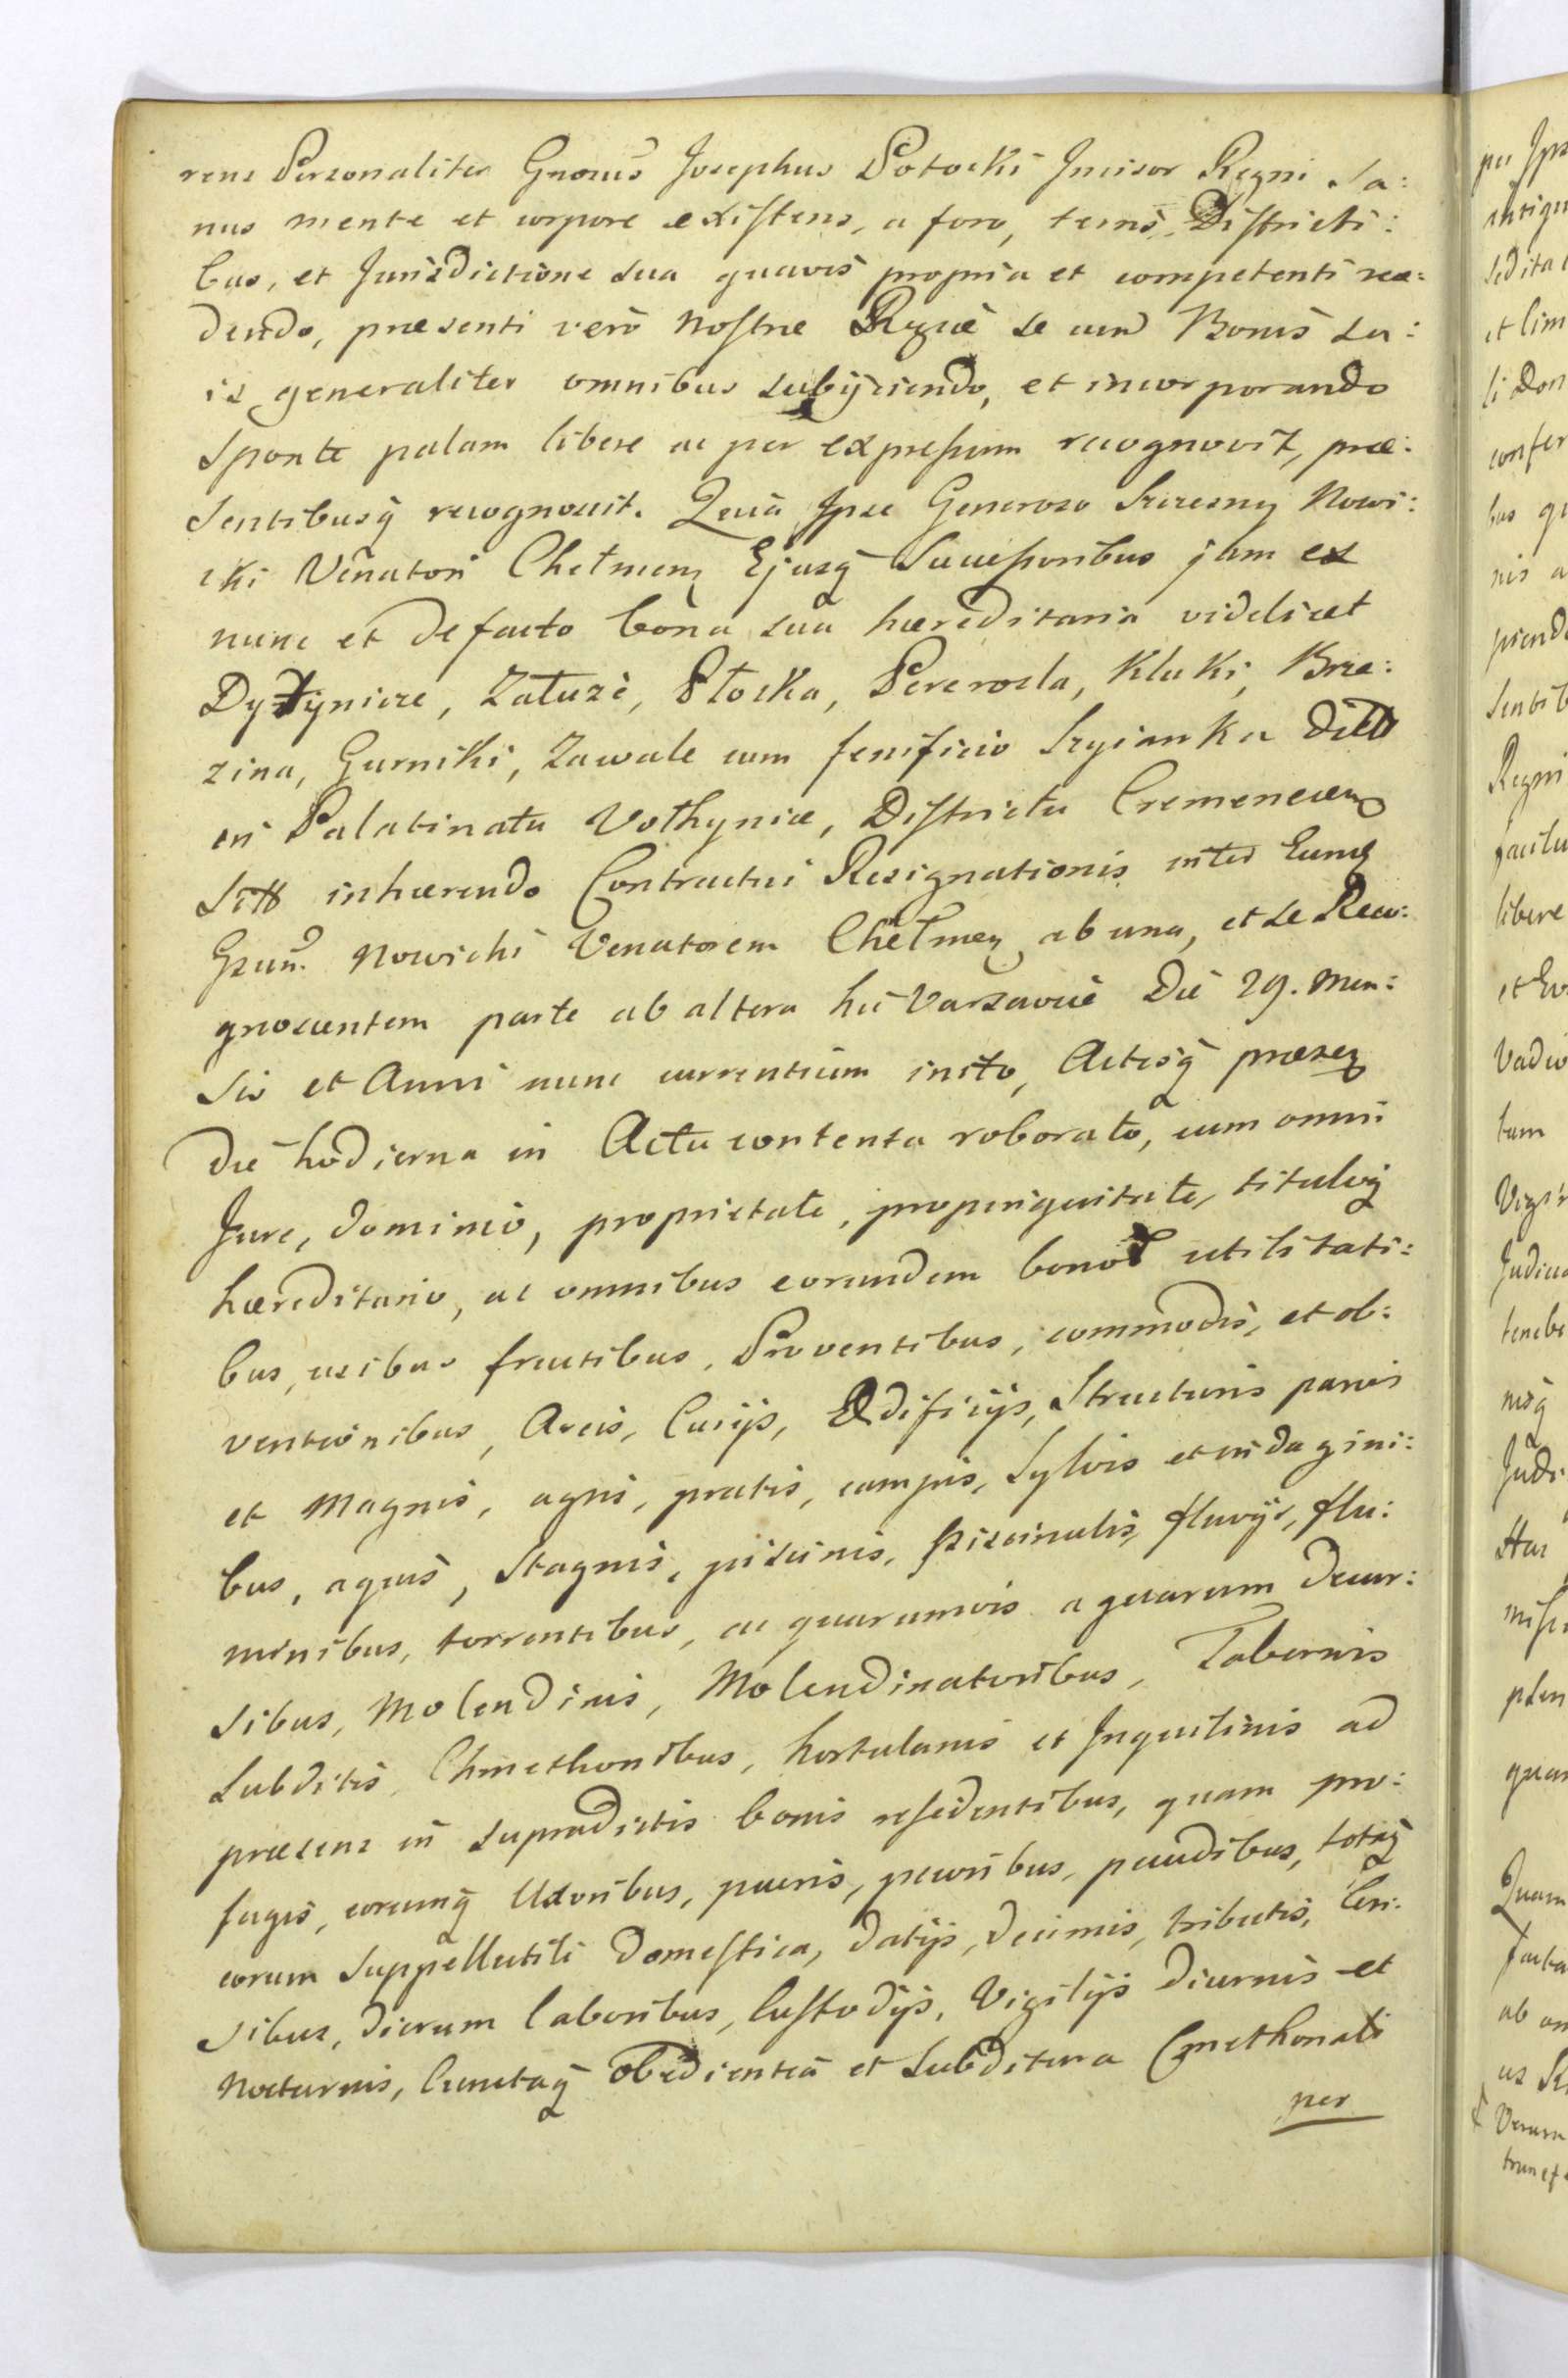 rens Personaliter Gnosus Josephus Potocki Incisor Regni Sa:
nus mente et corpore existens, a foro, terris, Districti:
bus, et Jurisdictione sua quavis propria et competenti rece:
dendo, praesenti vero Nostrae Regiae se cum Bonis su:
is generaliter omnibus subijciendo, et incorporando
Sponte palam libere ac per expressum recognovit, prae:
sentibusq recognoscit. Quia Ipse Generoso Szczesny Nowi:
cki Venatori Chełmeng Ejusq Successoribus jam ex
nunc et de facto bona sua haereditaria videlicet
Dytynicze, Załuze, Płoska, Pererosla, Kluki, Brze:
zina, Gurniki, Zawale cum fenificio Szyianka dict
in Palatinatu Volhyniae, Districtu Cremeneceng
Sitt inhaerendo Contractui Resignationis inter Eumq
Gsum Nowicki Venatorem Chełmeg ab una, et se Reco:
gnoscentem parte ab altera hic Varsaviae Die 29. Men:
sis et Anni nunc currentium inito, Actisq praeseg
die hodierna in Actu contenta roborato, cum omni
Jure, dominio, proprietate, propinquitate, tituloq
haereditario, ac omnibus eorundem bonor utilitati:
bus, usibus fructibus, Proventibus, commodis, et ob:
ventionibus, Areis, Curijs, Edificijs, Structuris parvis
et Magnis, agris, pratis, campis, Sylvis et indagini:
bus, aquis, Stagnis, piscinis, piscinulis, fluvijs, flu:
minibus, torrentibus, ac quarumvis aquarum decur:
sibus, Molendinis, Molendinatoribus, Tabernis
Subditis, Chmethonibus, hortulanis et Inquilinis ad
praesens in supradictis bonis residentibus, quam pro:
fugis, eorumq Uxoribus, pueris, pecoribus, pecudibus, totaq
eorum suppellectili domestica, datijs, decimis, tributis, Cen:
sibus, dierum laboribus, Custodijs, Vigilijs diurnis et
nocturnis, Cunctaq obedientia et Subditura Cmethonali
per